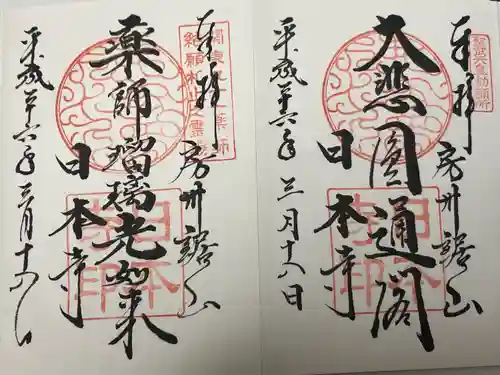 奉拝 房州鋸山
大悲圓通閣
日本寺
平成廿六年三月十八日
日本寺印
奉拝 房州鋸山
薬師瑠璃光如来
日本寺
平成廿六年三月十八日
日本寺印